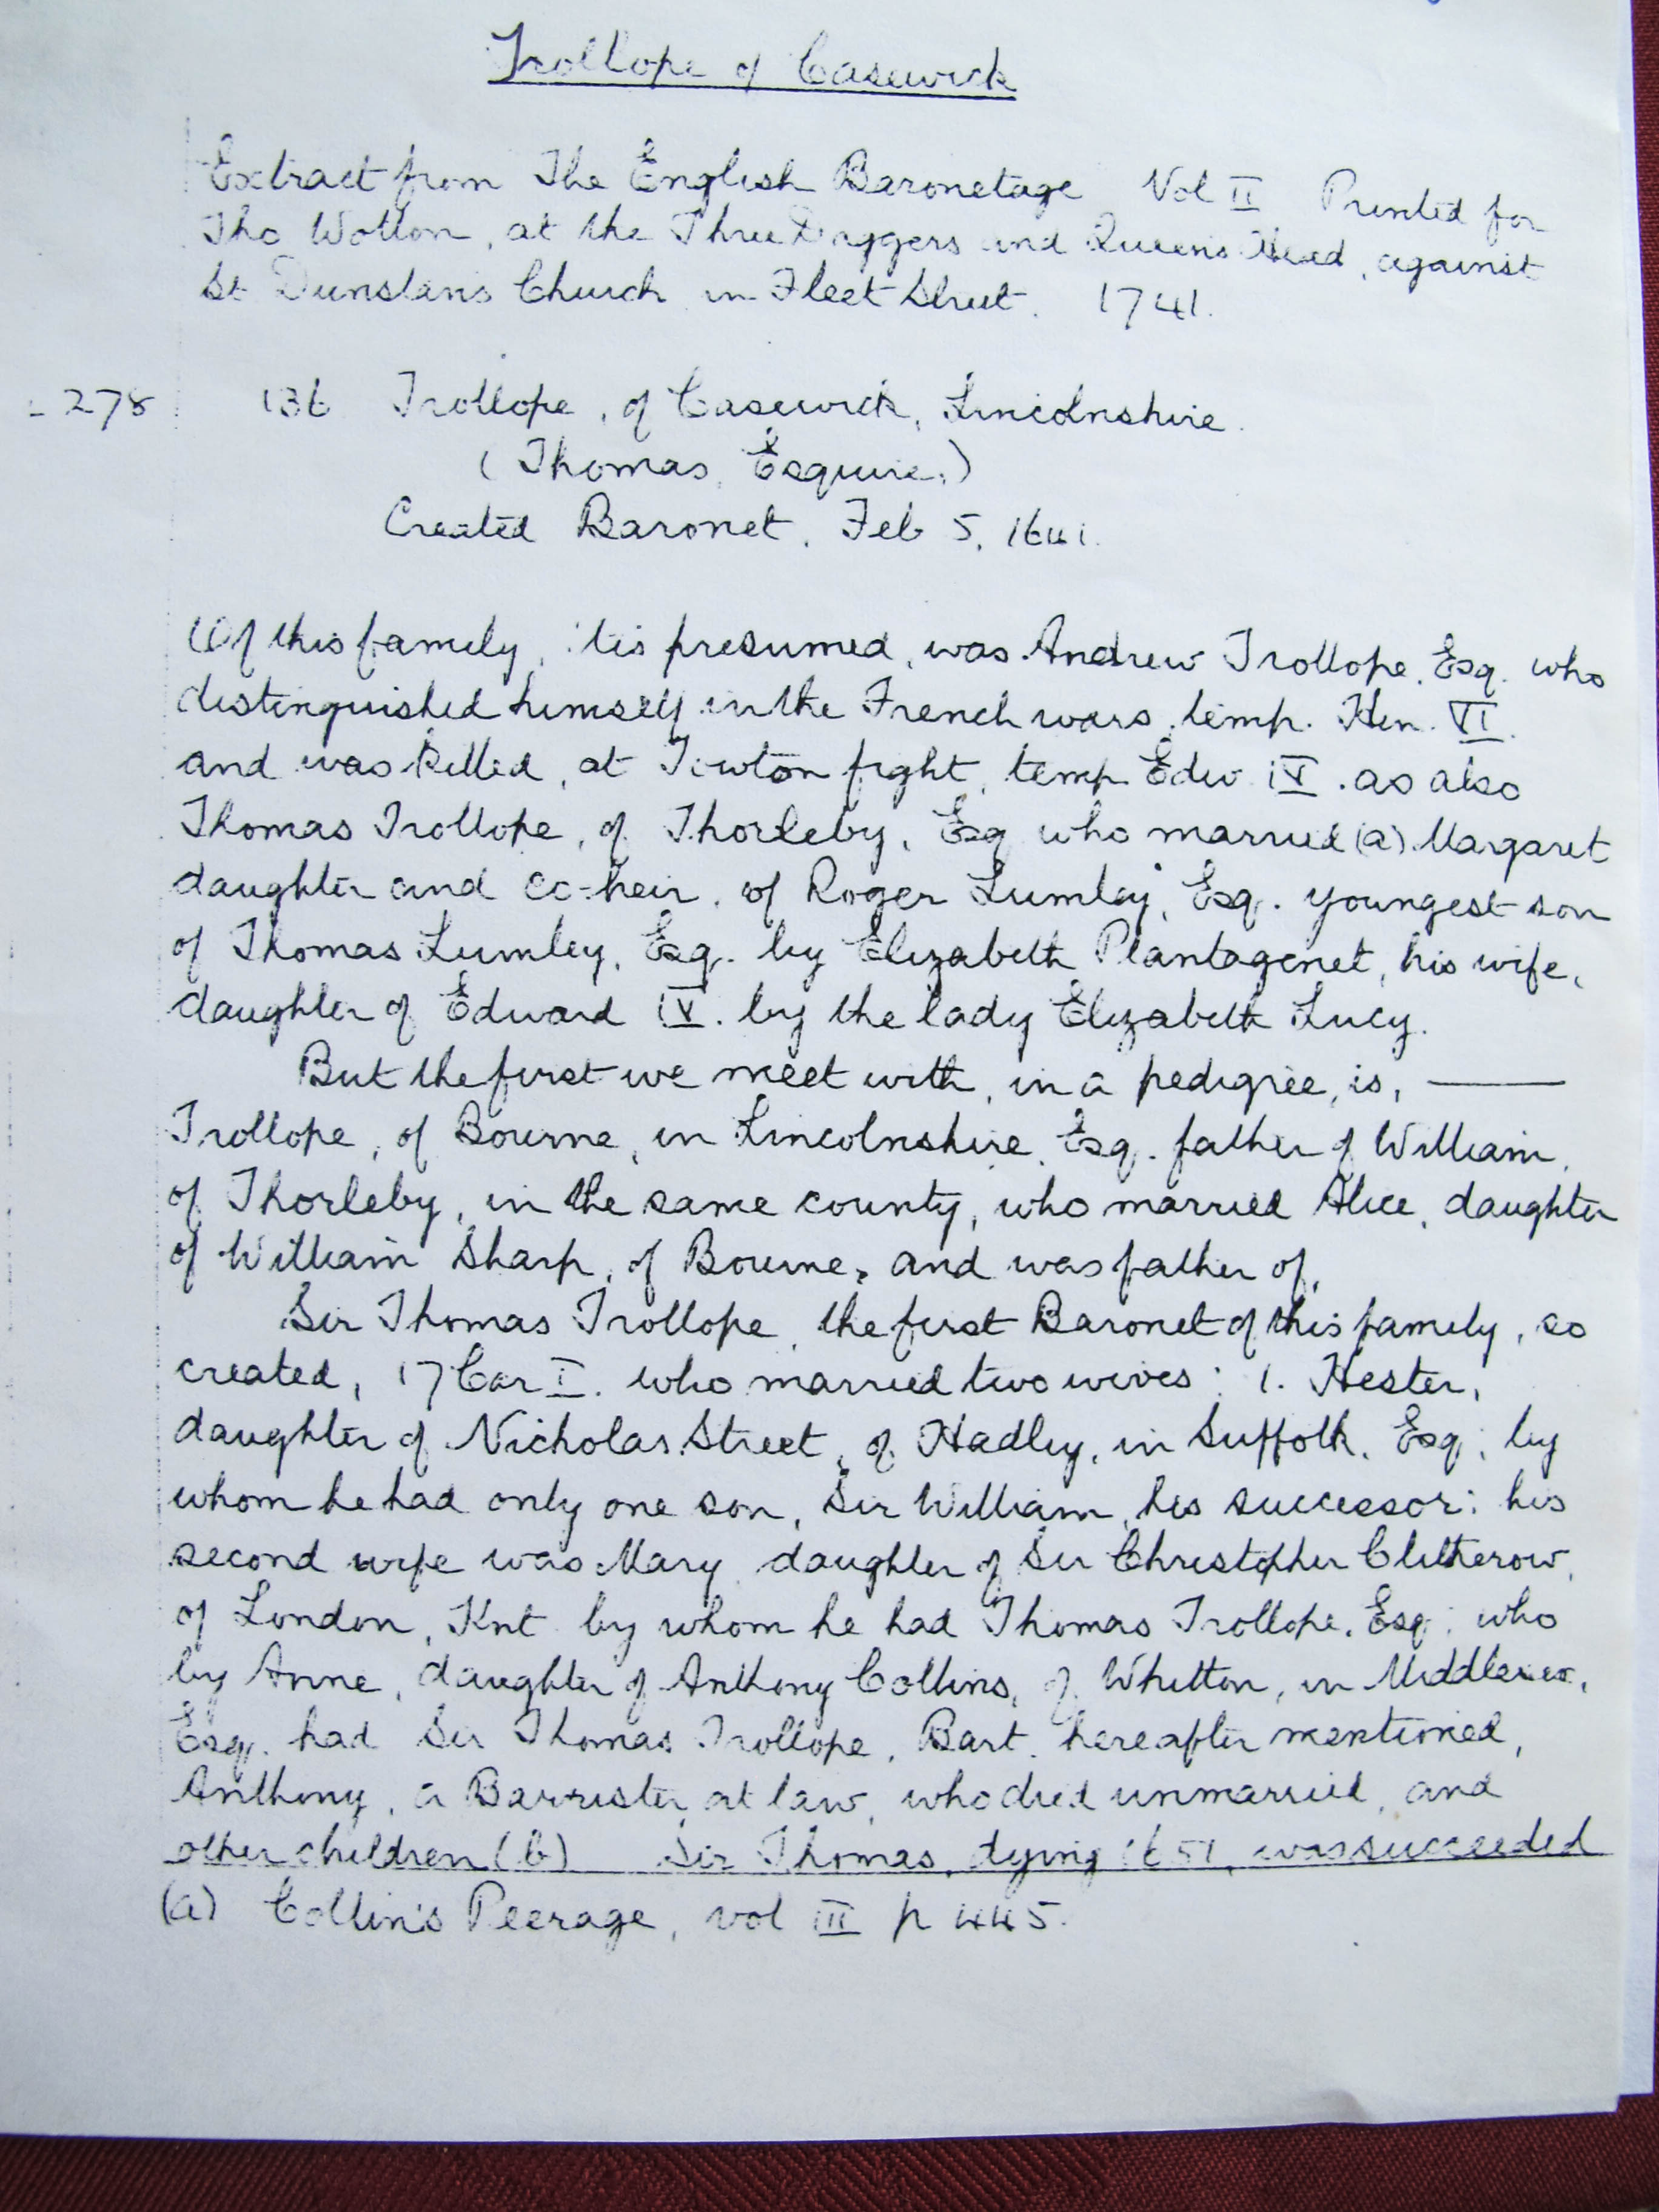 Trollope of Casewick
Extract from The English Baronetage Vol II Printed for
Tho Wotton, at the Three Daggers and Queen's Head, against
St Dunstan's Church in Fleet Street. 1741.
278 136 Trollope, of Casewick, Lincolnshire.
(Thomas, Esquire.)
Created Baronet, Feb 5, 1641.
Of this family, 'tis presumed, was Andrew Trollope, Esq. who
distinguished himself in the French wars, temp. Hen. VI.
and was killed, at Towton fight, temp Edw IV. as also
Thomas Trollope, of Thorleby, Esq who married (a) Margaret
daughter and co-heir, of Roger Lumley, Esq. youngest son
of Thomas Lumley, Esq. by Elizabeth Plantagenet, his wife,
daughter of Edward IV. by the lady Elizabeth Lucy.
But the first we meet with, in a pedigree, is, ———
Trollope, of Bourne, in Lincolnshire, Esq. father of William,
of Thorleby, in the same county, who married Alice, daughter
of William Sharp, of Bourne, and was father of,
Sir Thomas Trollope, the first Baronet of this family, so
created, 17 Car I. who married two wives: 1. Hester,
daughter of Nicholas Street, of Hadley, in Suffolk, Esq; by
whom he had only one son, Sir William, his successor: his
second wife was Mary, daughter of Sir Christopher Clitherow,
of London, Knt by whom he had Thomas Trollope, Esq; who
by Anne, daughter of Anthony Collins, of Whitton, in Middlesex,
Esq. had Sir Thomas Trollope, Bart. hereafter mentioned,
Anthony, a Barrister at law, who died unmarried, and
other children (b) Sir Thomas, dying 1651, was succeeded
(a) Collin's Peerage, vol III p 445.